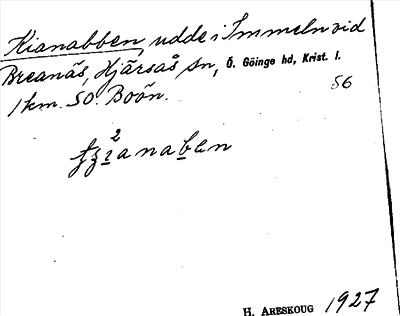 Kianabben, udde i Immeln vid
Breanäs, Hjärsås sn, Ö. Göinge hd, Krist. l.
1 km. SO. Boön.
56
2
H. ARESKOUG 1927